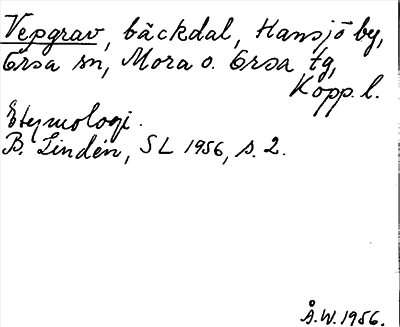 Vepgrav, bäckdal, Hansjö by,
Orsa sn, Mora o. Orsa tg,
Kopp. l.
Etymologi.
B. Lindén, SL 1956, s. 2.
Å.W. 1956.